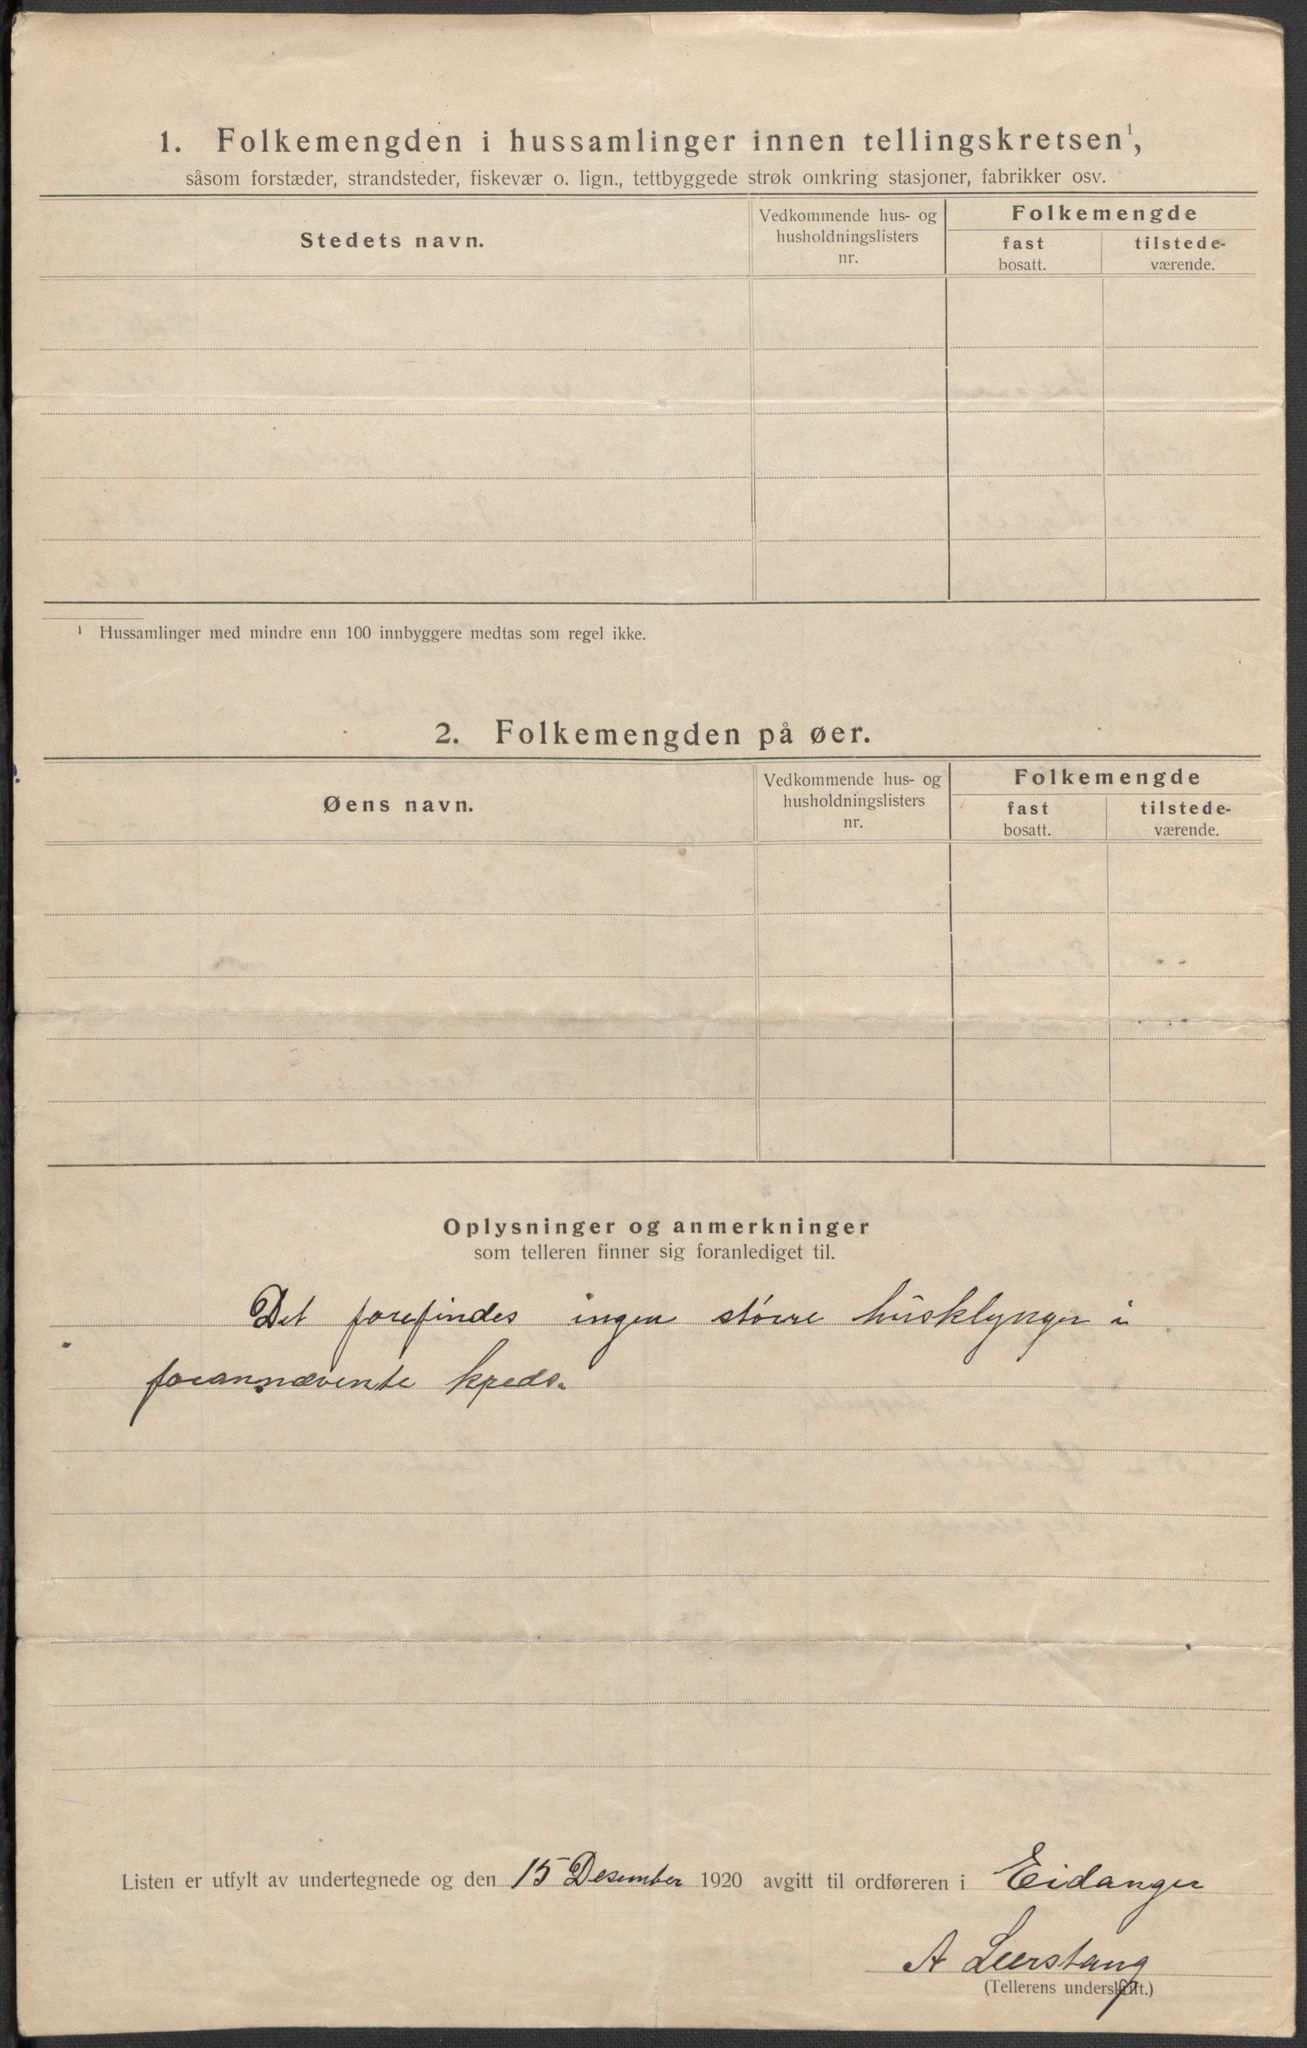 1. Folkemengden i hussamlinger innen tellingskretsen¹,
såsom forstæder, strandsteder, fiskevær o. lign., tettbyggede strøk omkring stasjoner, fabrikker osv.
Stedets navn.
Vedkommende hus- og
husholdningslisters
nr.
Folkemengde
fast
bosatt.
tilstede-
værende.
¹ Hussamlinger med mindre enn 100 innbyggere medtas som regel ikke.
2. Folkemengden på øer.
Øens navn.
Vedkommende hus- og
husholdningslisters
nr.
Folkemengde
fast
bosatt.
tilstede-
værende.
Oplysninger og anmerkninger
som telleren finner sig foranlediget til.
Det forefindes ingen større husklynger i
forannævente kreds.
Listen er utfylt av undertegnede og den 15 Desember 1920 avgitt til ordføreren i Eidanger
A Leerstang
(Tellerens underskrift.)